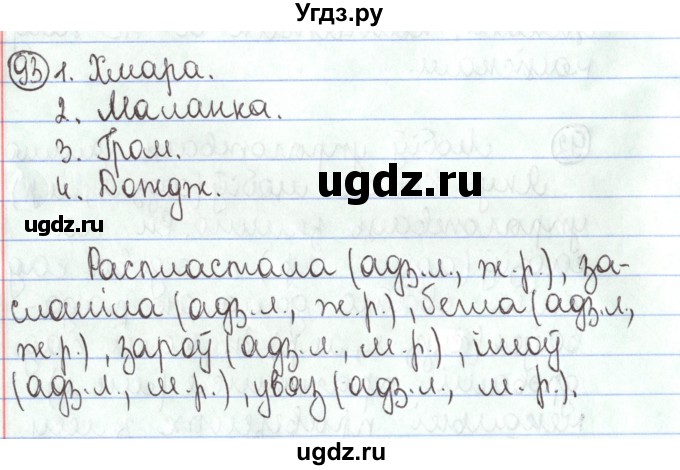 Угдз.ру
93 1. Хмара.
2. Маланка.
3. Гром.
4. Дождж.
ugdz.ru
ugdz.ru
Распластала (адз.л., ж.р.), за-
сланіла (адз.л., ж.р.), бегла (адз.л,
ж.р.), зароў (адз.л., м.р.), ішоў
(адз.л., м.р.), увяз (адз.л., м.р.).